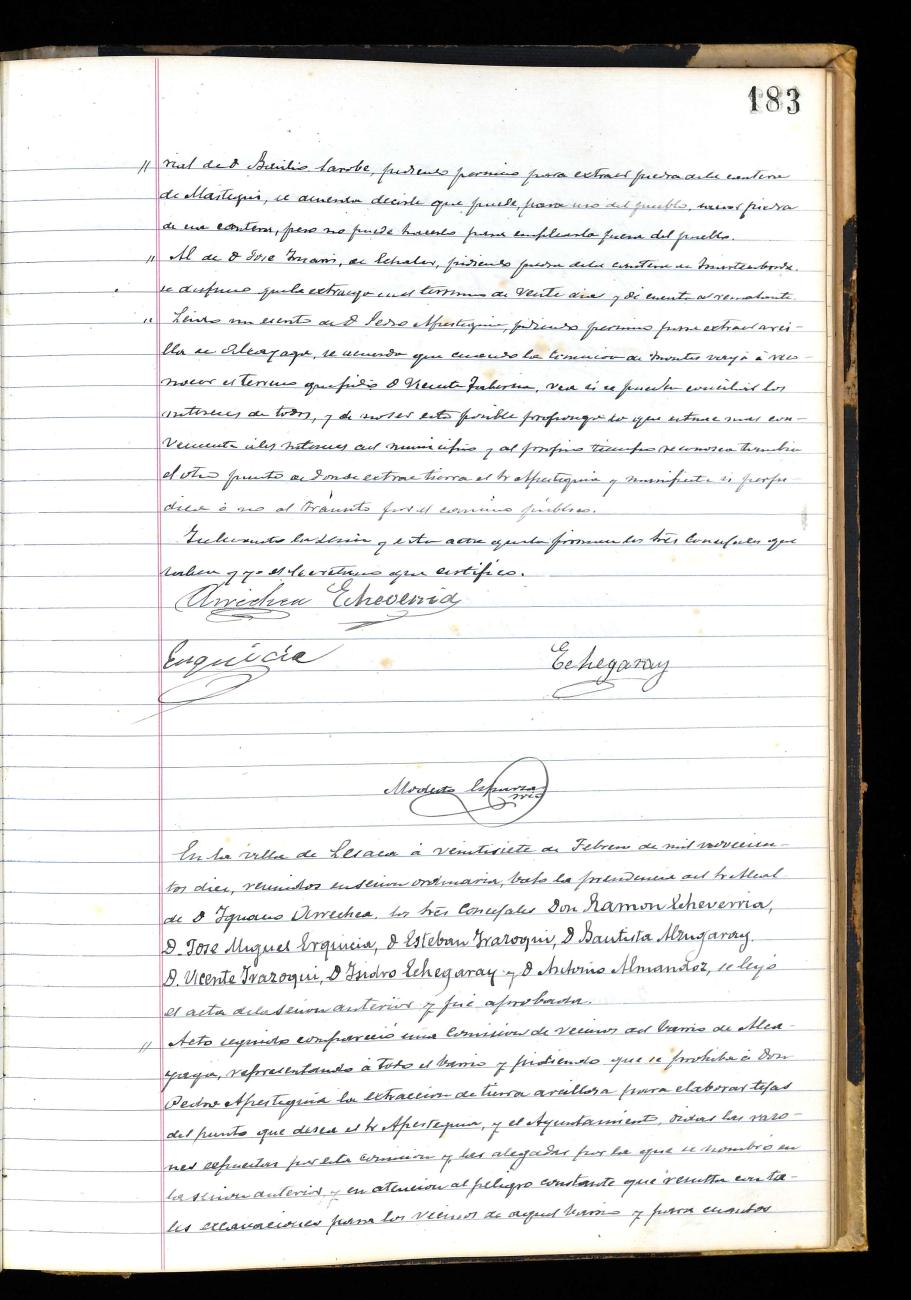 183
" rial de D Basilio Larobe, pidiendo permiso para extraer piedra de la cantera
de Mastegui, se acuerda decirle que puede, para uso del pueblo, sacar piedra
de esa cantera, pero no puede hacerlo para emplearla fuera del pueblo.
" Al de D José Irisarri, de Echalar, pidiendo piedra de la cantera de
se dispuso que la extraiga en el termino de veinte dias y dé cuenta al rematante.
" Leido un escrito de D Pedro Apesteguia, pidiendo permiso para extraer arci-
lla de Alcayaga, se acuerda que cuando la Comision de montes vaya á reco-
nocer el terreno que pidió D Vicente Taberna, vea si se pueden conciliar los
intereses de todos, y de no ser esto posible proponga lo que estime mas con-
veniente á los intereses del municipio y al propio tiempo reconozca tambien
el otro punto de donde extrae tierra el Sr Apesteguia y manifieste si perju-
dica ó no al tránsito por el camino público.
la sesion y esta acta que la firman los Sres Concejales que
saben y yo el Secretario que certifico.
Arrechea Echeverria
Erquicia Echegaray
Modesto Esparza
srio
En la villa de Lesaca á veintisiete de Febrero de mil novecien-
tos diez, reunidos en sesion ordinaria, bajo la presidencia del Sr Alcal
de D Ignacio Arrechea, los Sres Concejales Don Ramon Echeverria,
D. José Miguel Erquicia, D Esteban Irazoqui, D Bautista Alzugaray.
D. Vicente Irazoqui, D Isidro Echegaray y D Antonio Almandoz, se leyó
el acta de la sesion anterior y fué aprobada.
" Acto seguido compareció una Comision de vecinos del barrio de Alca-
yaga, representando á todo el barrio y pidiendo que se prohiba á Don
Pedro Apesteguia la extraccion de tierra arcillosa para elaborar tejas
del punto que desea el Sr Apesteguia, y el Ayuntamiento, oidas las razo-
nes expuestas por esta comision y las alegadas por la que se nombró en
la sesion anterior y en atencion al peligro constante que resulta con ta-
les excavaciones para los vecinos de aquel barrio y para cuantos